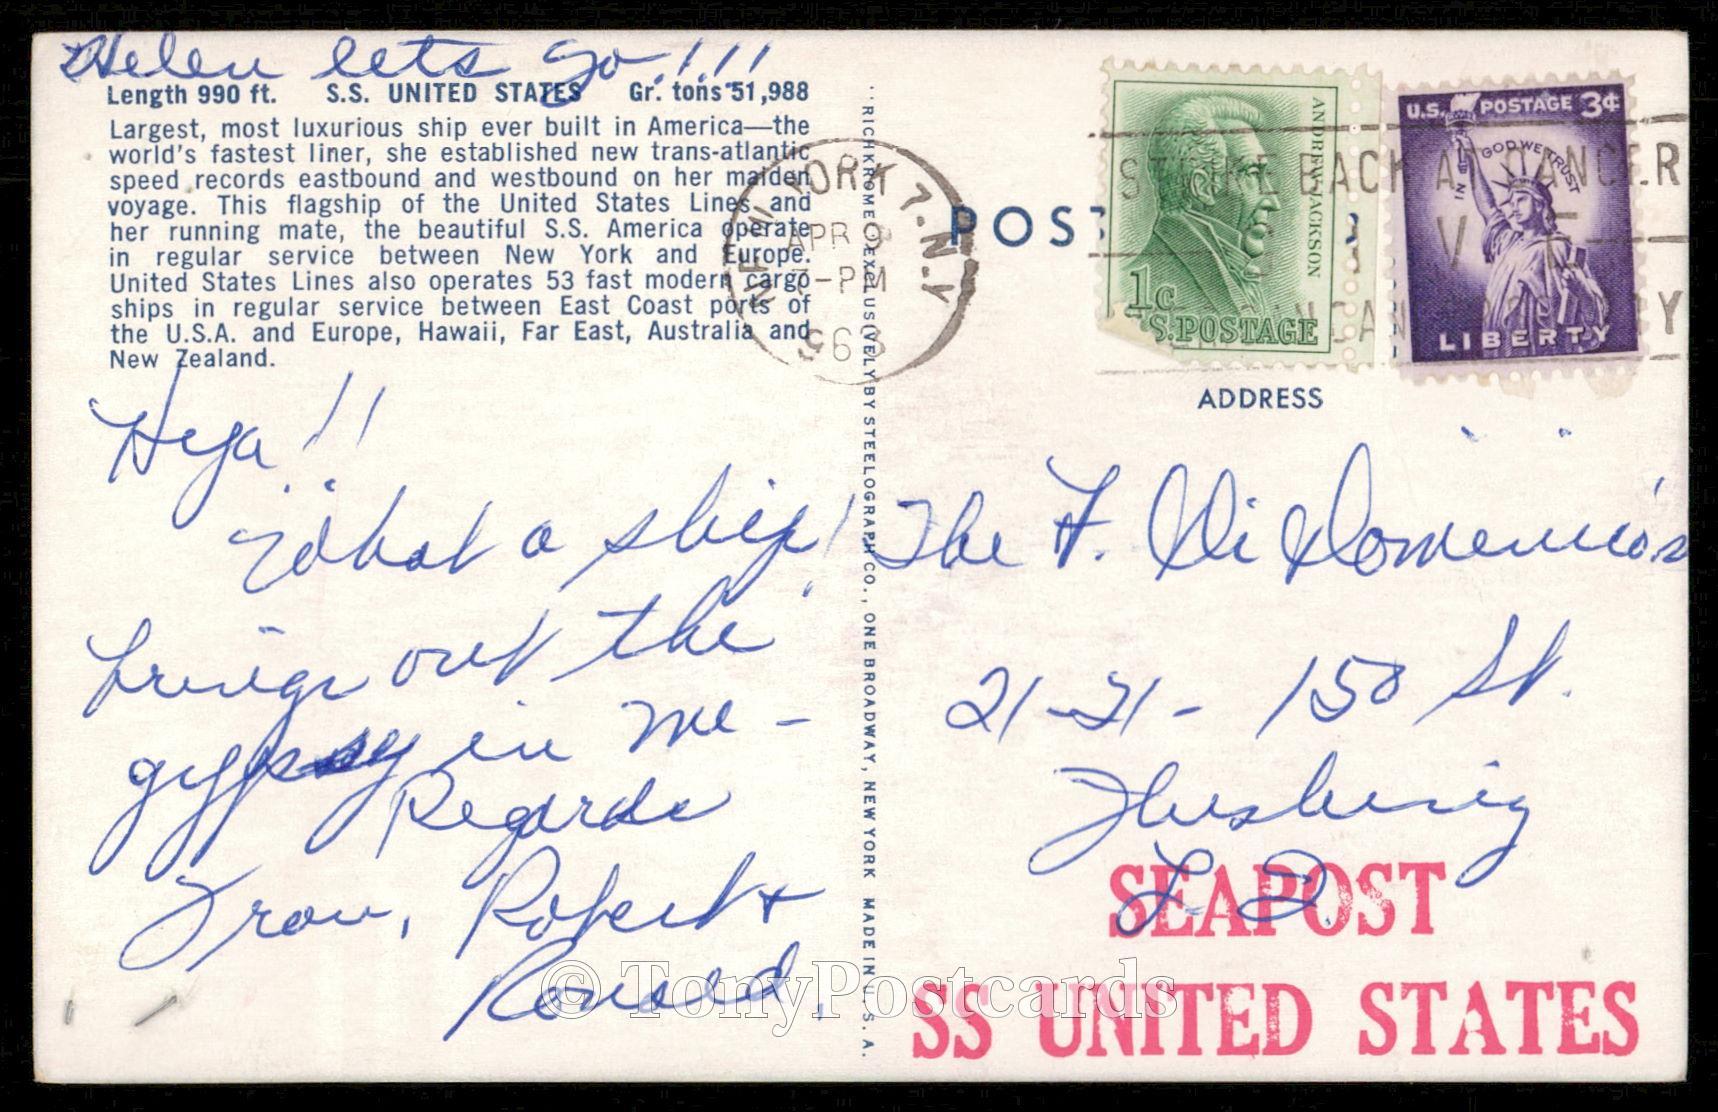 Helen lets go!!!!
Length 990 ft. S.S. UNITED STATES Gr. tons 51,988
Largest, most luxurious ship ever built in America—the
world's fastest liner, she established new trans-atlantic
speed records eastbound and westbound on her maiden
voyage. This flagship of the United States Lines and
her running mate, the beautiful S.S. America operate
in regular service between New York and Europe.
United States Lines also operates 53 fast modern cargo
ships in regular service between East Coast ports of
the U.S.A. and Europe, Hawaii, Far East, Australia and
New Zealand.
Hya!!
What a ship!
brings out the
gypsy in me -
Regards
Fran, Robert +
Ronald.
"RICHKROME" EXCLUSIVELY BY STEELOGRAPH CO., ONE BROADWAY, NEW YORK MADE IN U. S. A.
NEW YORK 7. N.Y
APR 9
7-PM
1963
POST
ANDREW JACKSON
1c
U.S. POSTAGE
U.S. POSTAGE 3¢
IN GOD WE TRUST
LIBERTY
STRIKE BACK AT CANCER
GIVE
AMERICAN CANCER SOCIETY
ADDRESS
The F. Di Domenico's
21-21-150 St.
Flushing
L. I.
SEAPOST
SS UNITED STATES
© TonyPostcards